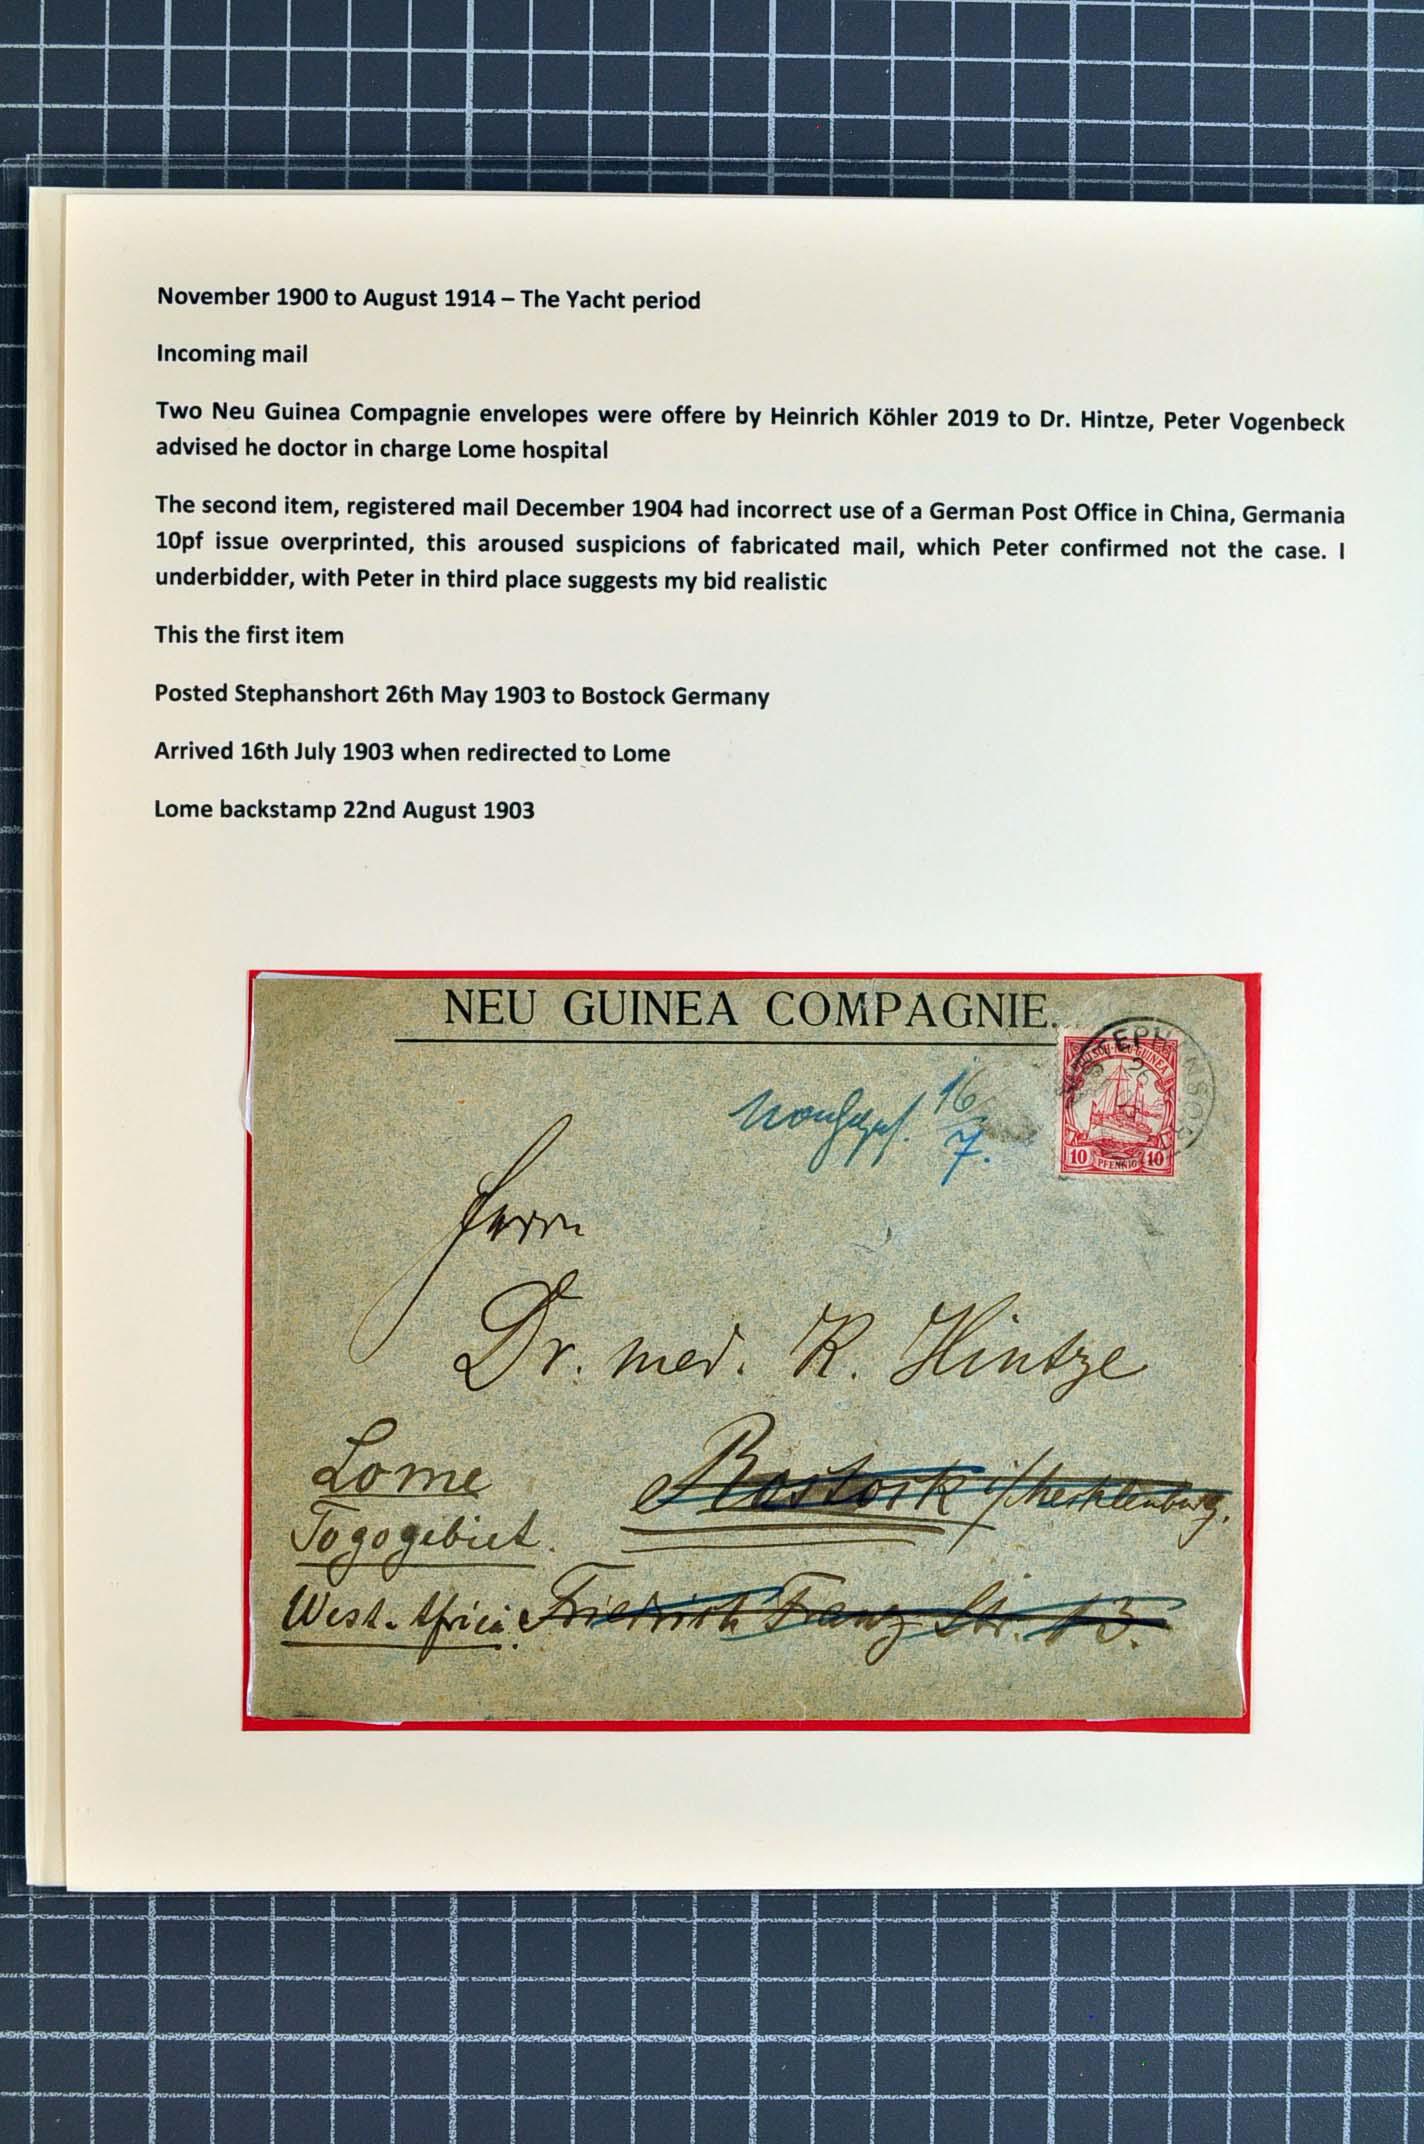 November 1900 to August 1914 – The Yacht period
Incoming mail
Two Neu Guinea Compagnie envelopes were offere by Heinrich Köhler 2019 to Dr. Hintze, Peter Vogenbeck
advised he doctor in charge Lome hospital
The second item, registered mail December 1904 had incorrect use of a German Post Office in China, Germania
10pf issue overprinted, this aroused suspicions of fabricated mail, which Peter confirmed not the case. I
underbidder, with Peter in third place suggests my bid realistic
This the first item
Posted Stephanshort 26th May 1903 to Bostock Germany
Arrived 16th July 1903 when redirected to Lome
Lome backstamp 22nd August 1903
NEU GUINEA COMPAGNIE.
STEPHANSORT
26
DEUTSCH-NEU-GUINEA
10 PFENNIG 10
16
7.
Herrn
Dr. med. R. Hintze
Rostock i/Mecklenburg.
Friedrich Franz Str. 13.
Lome
Togogebiet.
West-Africa.